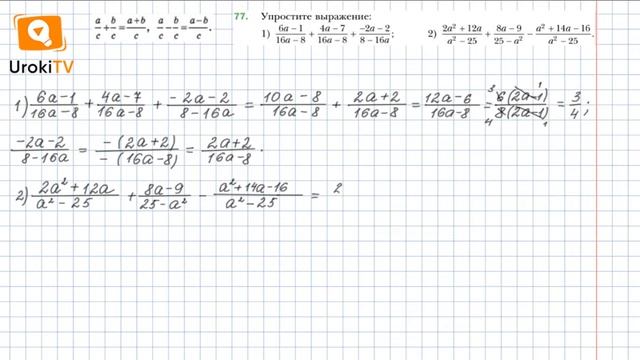 a/c + b/c = a+b/c, a/c - b/c = a-b/c.
77. Упростите выражение:
1) 6a-1/16a-8 + 4a-7/16a-8 + -2a-2/8-16a; 2) 2a²+12a/a²-25 + 8a-9/25-a² - a²+14a-16/a²-25.
UrokiTV
1) 6a-1/16a-8 + 4a-7/16a-8 + -2a-2/8-16a = 10a-8/16a-8 + 2a+2/16a-8 = 12a-6/16a-8 = 6(2a-1)/8(2a-1) = 3/4;
-2a-2/8-16a = -(2a+2)/-(16a-8) = 2a+2/16a-8.
2) 2a²+12a/a²-25 + 8a-9/25-a² - a²+14a-16/a²-25 = 2